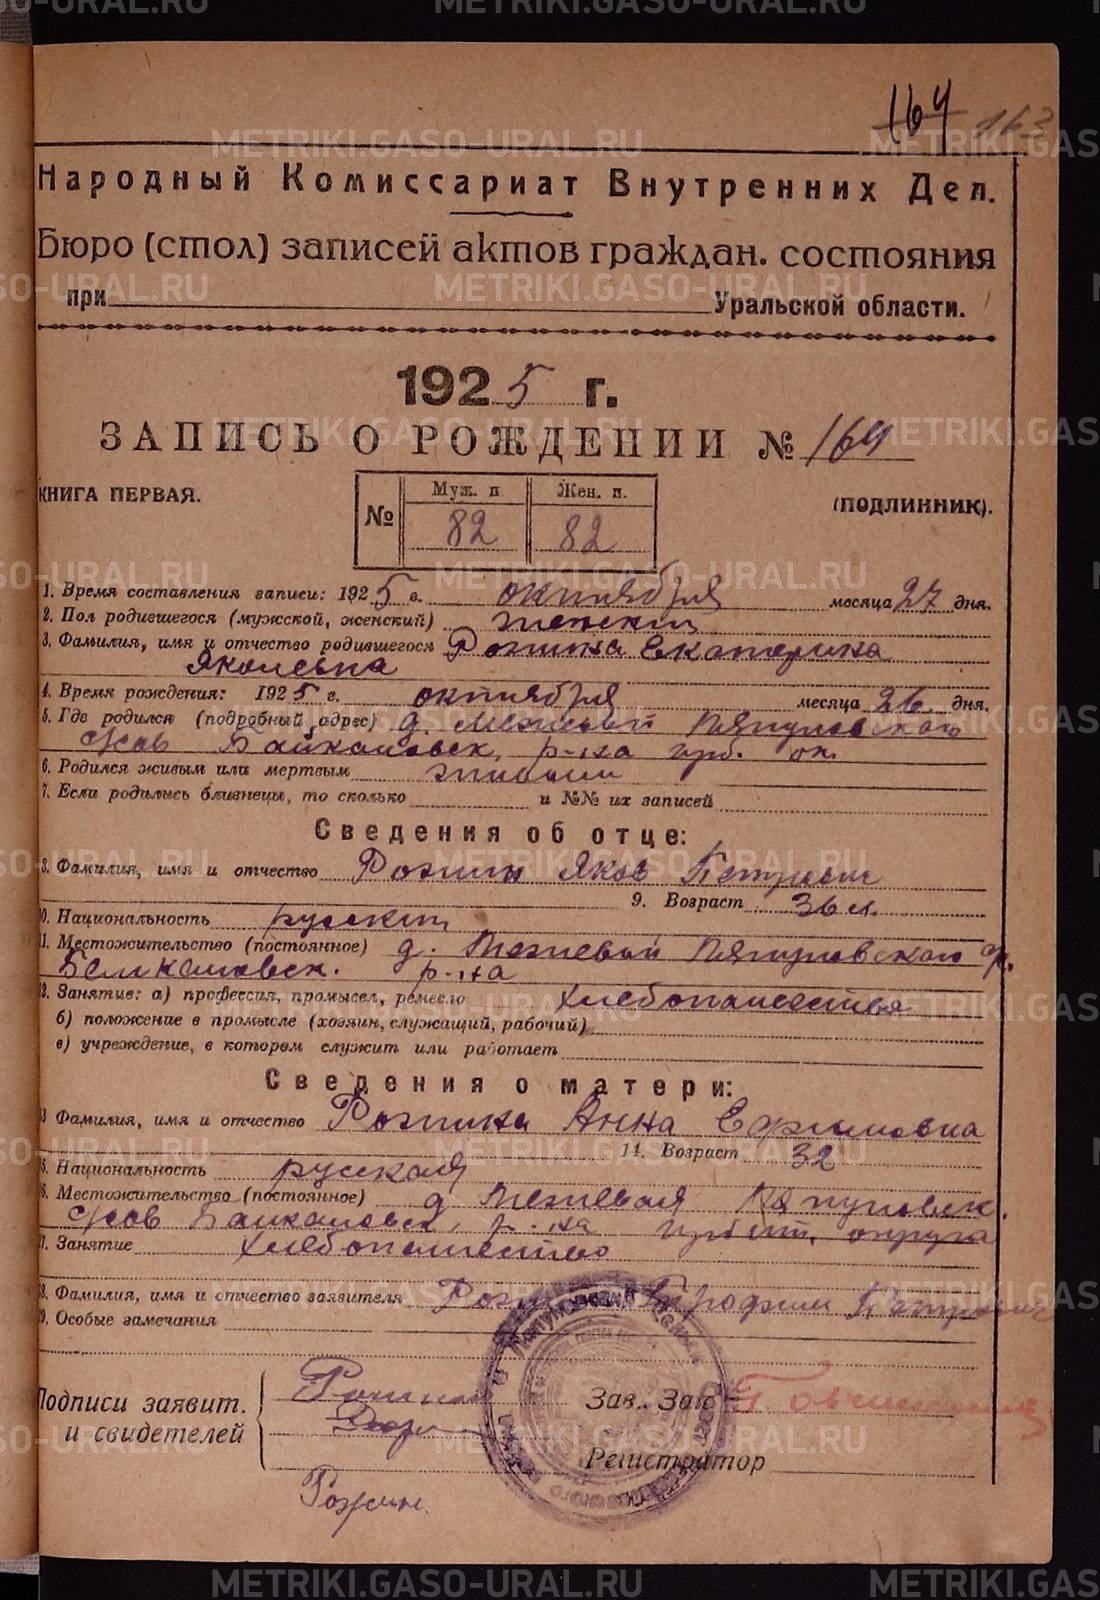 164 163
Народный Комиссариат Внутренних Дел.
Бюро (стол) записей актов граждан. состояния
при Уральской области.
1925 г.
ЗАПИСЬ О РОЖДЕНИИ № 164
КНИГА ПЕРВАЯ. (ПОДЛИННИК).
№ Муж. п Жен. п.
82 82
1. Время составления записи: 1925 г. октября месяца 27 дня.
2. Пол родившегося (мужской, женский) женский
3. Фамилия, имя и отчество родившегося Рожина Екатерина
Яковлевна
4. Время рождения: 1925 г. октября месяца 26 дня.
5. Где родился (подробный адрес) д. Межевой
Байкаловск. р-на ирб. ок.
6. Родился живым или мертвым живым
7. Если родились близнецы, то сколько и №№ их записей
Сведения об отце:
8. Фамилия, имя и отчество Рожин Яков Петрович
9. Возраст 36 л.
10. Национальность русский
11. Местожительство (постоянное) д. Межевой
Байкаловск. р-на
12. Занятие: а) профессия, промысел, ремесло хлебопашество
б) положение в промысле (хозяин, служащий, рабочий)
в) учреждение, в котором служит или работает
Сведения о матери:
13 Фамилия, имя и отчество Рожина Анна Ефимовна
14. Возраст 32
15. Национальность русская
16. Местожительство (постоянное) д Межевая
Байкаловск. р-на ирбит. округа
17. Занятие хлебопашество
18. Фамилия, имя и отчество заявителя Рожин Трофим Петрович
19. Особые замечания
Подписи заявит. Рожин Зав. Заг
и свидетелей
Регистратор
Рожин.
METRIKI.GASO-URAL.RU